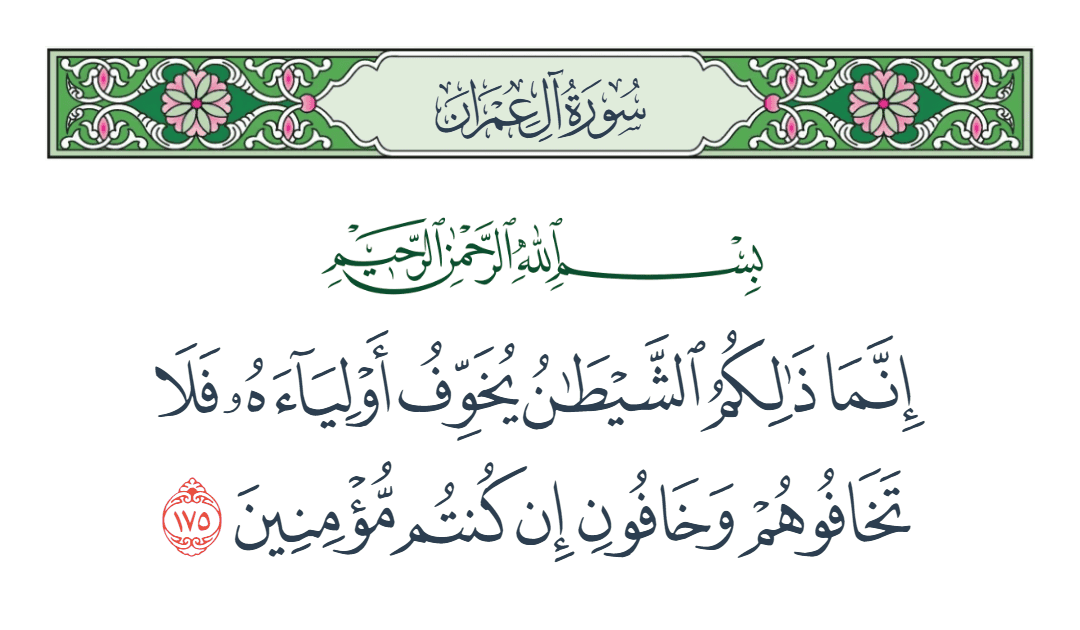 سُورَةُ آلِ عِمْرَانَ
بِسْمِ ٱللَّهِ ٱلرَّحْمَٰنِ ٱلرَّحِيمِ
إِنَّمَا ذَٰلِكُمُ ٱلشَّيْطَٰنُ يُخَوِّفُ أَوْلِيَآءَهُۥ فَلَا
تَخَافُوهُمْ وَخَافُونِ إِن كُنتُم مُّؤْمِنِينَ ١٧٥